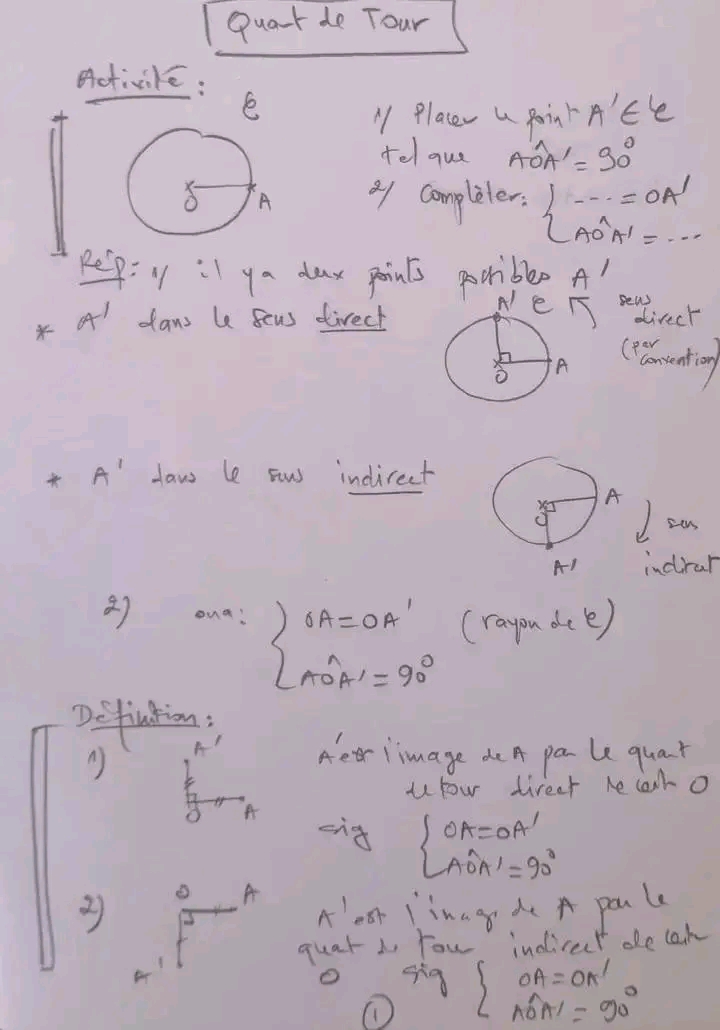 Quart de Tour
Activité :
C
O
A
1) Placer le point A' ∈ C
tel que AÔA' = 90°
2) Compléter : { ---- = OA'
AÔA' = ---
Rép : 1) il y a deux points possibles A'
* A' dans le sens direct
A' C sens
direct
(par
convention)
O A
* A' dans le sens indirect
O A
A'
sens
indirect
2) ona : { OA = OA' (rayon de C)
AÔA' = 90°
Définition :
1) A'
O A
A' est l'image de A par le quart
de tour direct de O
sig { OA = OA'
AÔA' = 90°
2) O A
A'
A' est l'image de A par le
quat de tour indirect de
O sig { OA = OA'
AÔA' = 90°
1